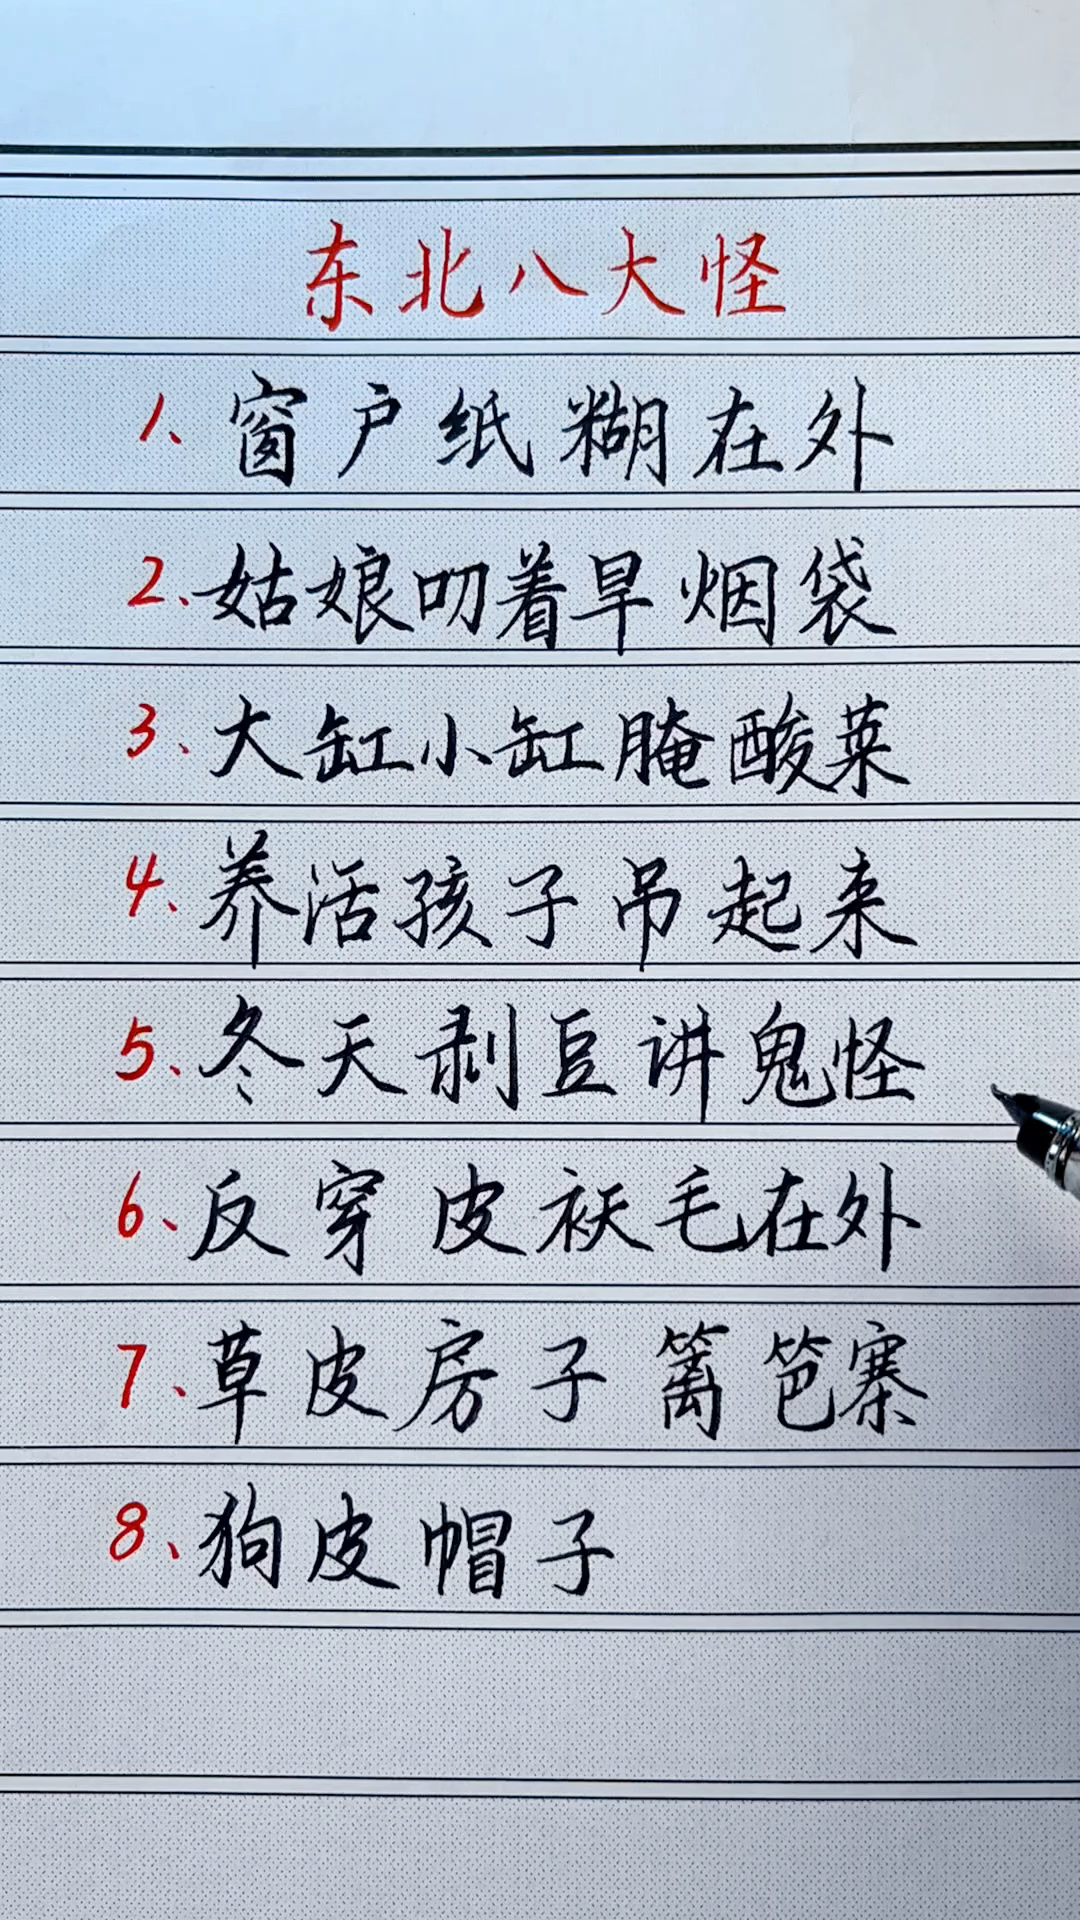 东北八大怪
1、窗户纸糊在外
2、姑娘叨着旱烟袋
3、大缸小缸腌酸菜
4、养活孩子吊起来
5、冬天剥豆讲鬼怪
6、反穿皮袄毛在外
7、草皮房子篱笆寨
8、狗皮帽子